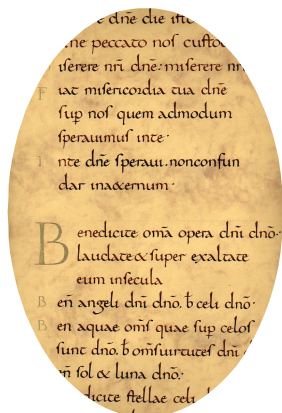 dn̄e die isti
ne peccato nos custo
iserere nr̄i dn̄e· miserere nr
F iat misericordia tua dn̄e
sup̄ nos quem admodum
sperauimus inte·
I nte dn̄e speraui. nonconfun
dar inaeternum·
B enedicite om̄a opera dn̄i dn̄o·
laudate & super exaltate
eum insecula
B en̄ angeli dn̄i dn̄o. b̄ celi dn̄o·
B en̄ aquae om̄s quae sup̄ celos
sunt dn̄o. b̄ om̄s uirtutes dn̄i
n̄ sol & luna dn̄o·
dicite stellae celi